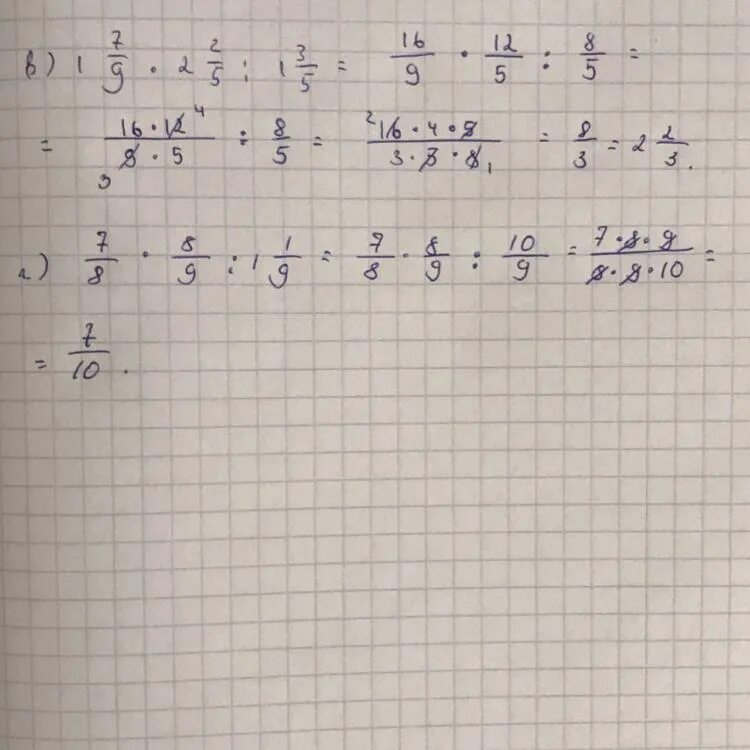 в) 1 7/9 · 2 2/5 : 1 3/5 = 16/9 · 12/5 : 8/5 =
= 16 · 12 4 / 9 · 5 3 : 8/5 = 2 16 · 4 · 5 / 3 · 5 · 8 1 = 8/3 = 2 2/3.
г) 7/8 · 8/9 : 1 1/9 = 7/8 · 8/9 : 10/9 = 7 · 8 · 9 / 8 · 9 · 10 =
= 7/10.